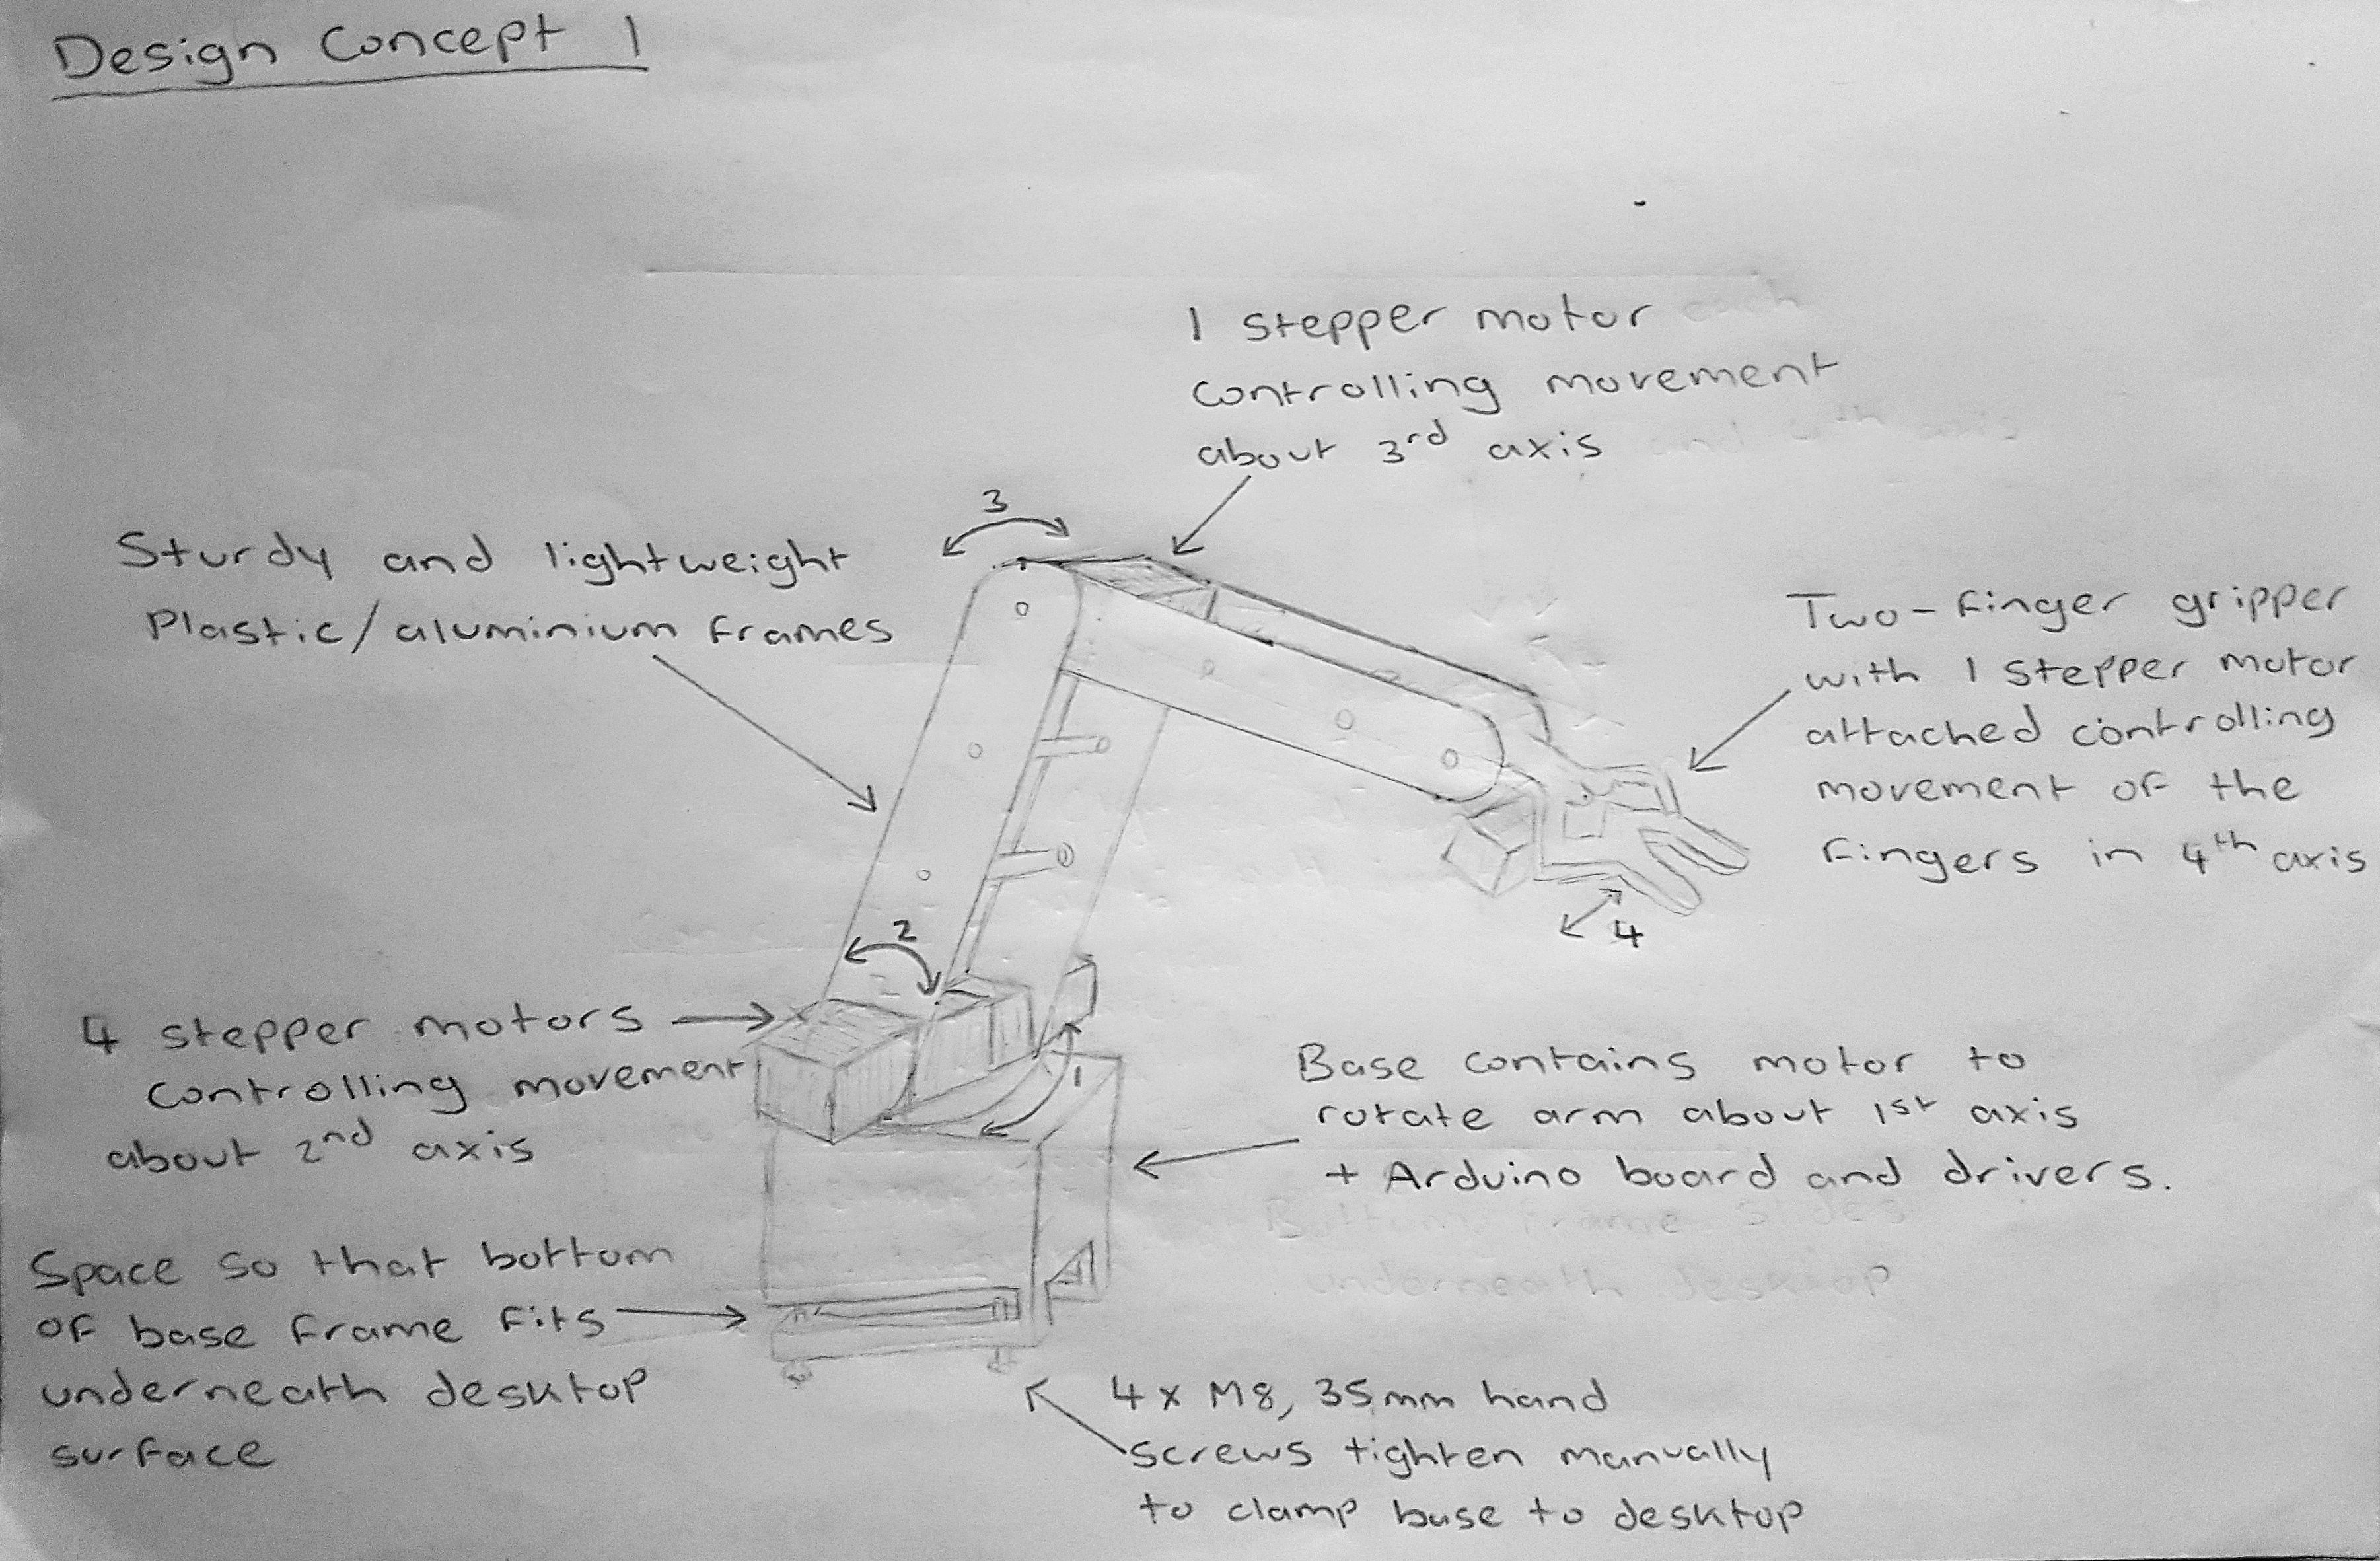 Design Concept 1
1 stepper motor each
controlling movement
about 3rd axis and 4th axis
3
Sturdy and lightweight
Plastic/aluminium frames
Two-finger gripper
with 1 stepper motor
attached controlling
movement of the
fingers in 4th axis
4
2
4 stepper motors
controlling movement
about 2nd axis
1
Base contains motor to
rotate arm about 1st axis
+ Arduino board and drivers.
Bottom frame slides
underneath desktop
Space so that bottom
of base frame fits
underneath desktop
surface
4x M8, 35mm hand
screws tighten manually
to clamp base to desktop